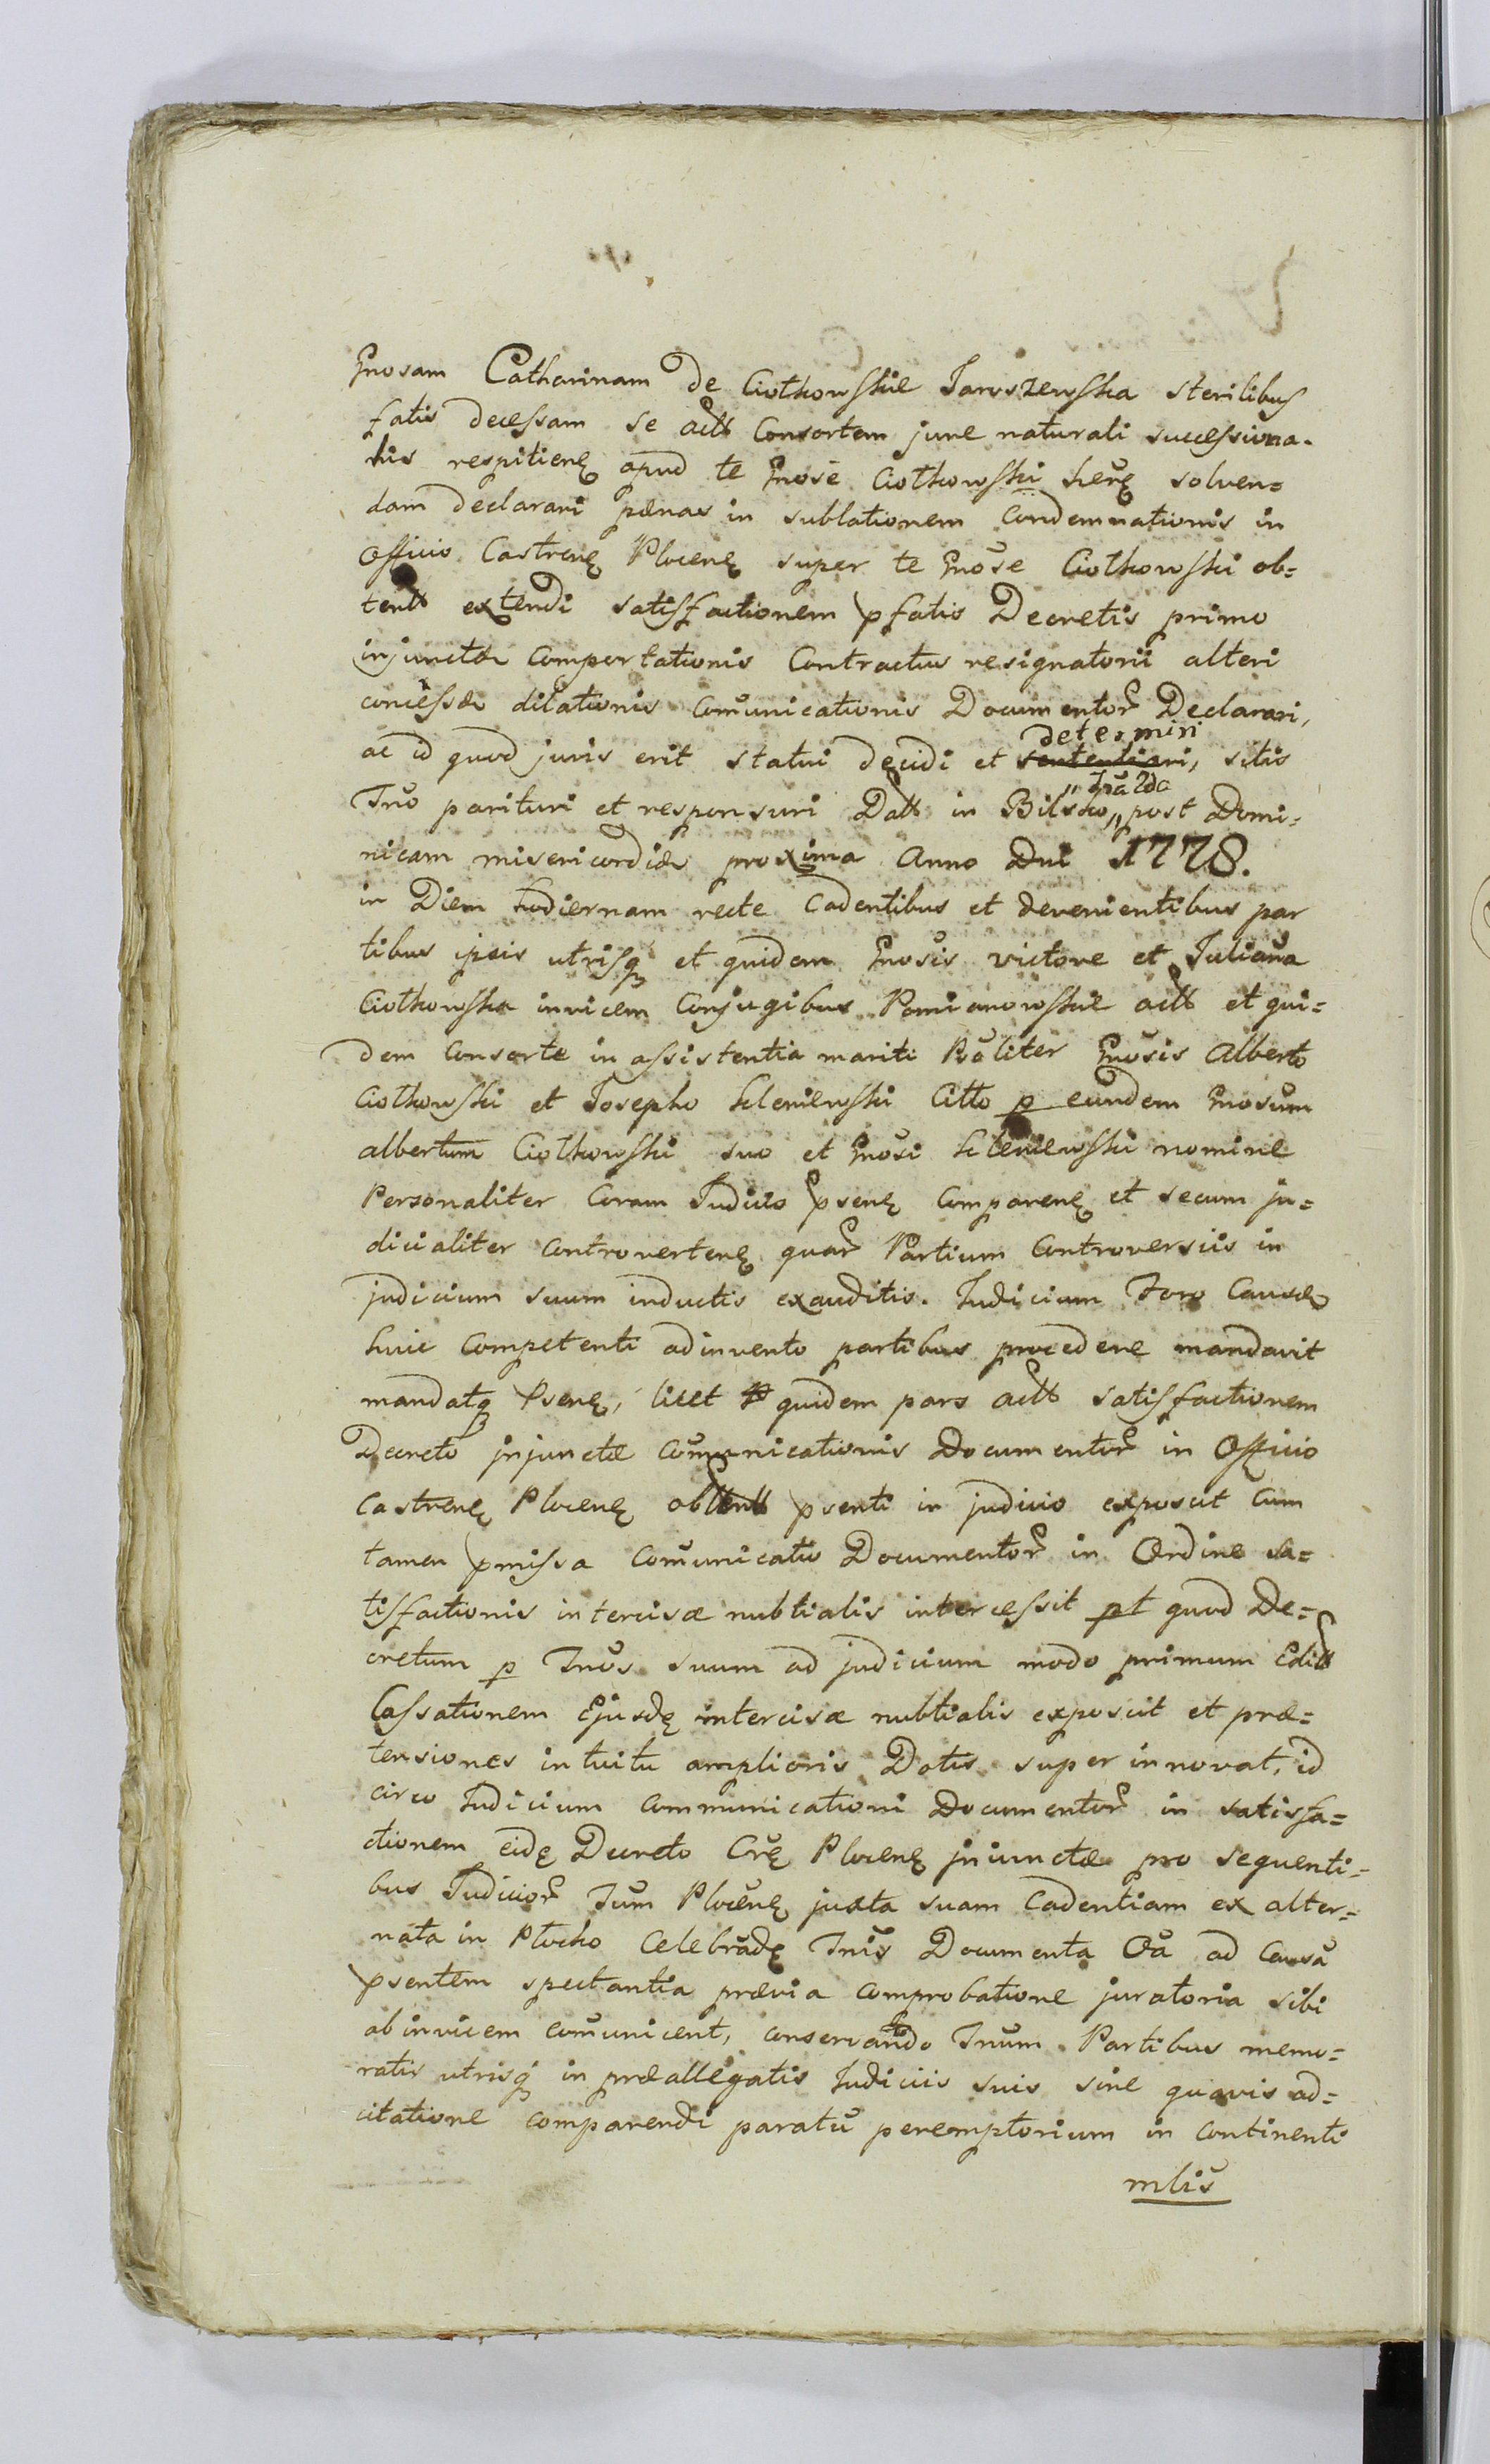 Gnosam Catharinam de Ciołkowskie Jaroszewska sterilibus
fatis decessam se actt Consortem jure naturali successiona-
lis respitienę apud te Gnose Ciołkowski herę solven=
dam declarari pænas in sublationem Condemnationis in
Officio Castrenę Plocenę super te Gnose Ciołkowski ob=
tentt extendi satisfactionem pfatis Decretis primo
injunctæ Comportationis Contractus resignatorii alteri
concessæ dilationis Comunicationis Documentor Declarari,
ac id quod juris erit statui decidi et sententiari, determiri sitis
Tnō parituri et responsuri Datt in Bilsko „ Fria 2da „ post Domi=
nicam misericordiæ proxima Anno Dni 1778.
in Diem hodiernam recte Cadentibus et devenientibus par
tibus ipsis utrisq et quidem Gnosis victore et Juliana
Ciołkowska invicem Conjugibus Pomianowskie actt et qui=
dem Consorte in assistentia mariti Psoliter Gnosis Alberto
Ciołkowski et Josepho Kleniewski Citto p eundem Gnosum
albertum Ciołkowski suo et Gnosi Kleniewski nomine
Personaliter Coram Judicio psenę Comparenę et secum ju=
dicialiter Controvertenę quar Partium Controversiis in
judicium suum inductis exauditis. Judicium Foro Causæ
huic Competenti adinvento partibus procedere mandavit
mandatq Psenę, licet quidem pars actt satisfactionem
Decreto injunctæ Comunicationis Documentor in Officio
Castrenę Plocenę obtentt psenti in judicio exposcit Cum
tamen pmissa Comunicatio Documentor in Ordine sa=
tisfactionis intercisæ nubtialis intercessit pt quod De=
cretum p Tnos suum ad judicium modo primum Editt
Cassationem Ejusdę intercisæ nubtialis exposcit et præ=
tensiones intuitu amplioris Dotis super innovat, id
circo Judicium Communicationi Documentor in satisfa=
ctionem eidę Decreto Crę Plocenę iniunctæ pro sequenti=
bus Judicior Tum Plocenę juxta suam Cadentiam ex alter=
nata in Płocko Celebradę Tnis Documenta Oa ad Causa
psentem spectantia prævia Comprobatione juratoria sibi
abinvicem comunicent, conservando Tnum Partibus memo=
ratis utrisq in præallegatis Judiciis suis sine quavis ad=
citatione comparendi paratu peremptorium in Continenti
mlis